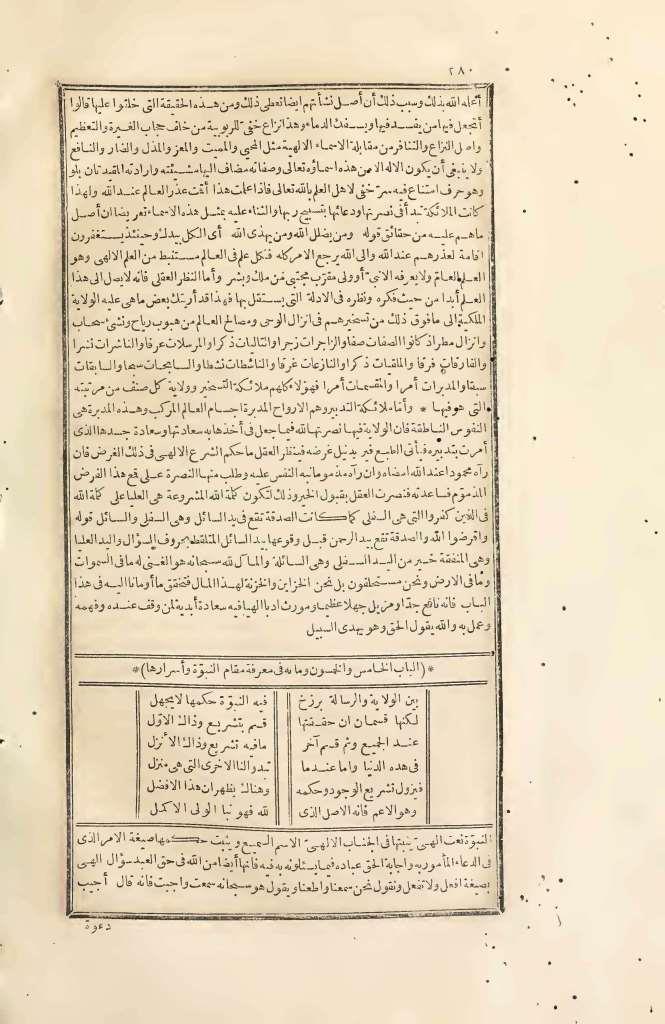 ٢٨٠
أعلمه الله بذلك وسبب ذلك أن أصل نشأتهم ايضا تعطى ذلك ومن هذه الحقيقة التى خلقوا عليها قالوا
أتجعل فيها من يفسد فيها ويسفك الدماء وهذا نزاع خفى للربوبية من خلف حجاب الغيرة والتعظيم
واصل النزاع والتنافر من مقابلة الاسماء الالهية مثل المحيى والمميت والمعز والمذل والضار والنافع
ولا ينبغى أن يكون الاله الا من هذه اسماؤه تعالى وصفاته مضاف اليها مشيئته وارادته المقيدتان بلو
وهو حرف امتناع فيه سر خفى لاهل العلم بالله تعالى فاذا علمت هذا أقمت عذر العالم عند الله ولهذا
كانت الملائكة تبدأ فى نصرتها ودعائها بتسبيح ربها والثناء عليه بمثل هذه الاسماء تعريضا ان أصل
ماهم عليه من حقائق قوله ومن يضلل الله ومن يهدى الله أى الكل بيدك وحينئذ يستغفرون
اقامة لعذرهم عند الله والى الله يرجع الامر كله فكل علم فى العالم مستنبط من العلم الالهى وهو
العلم العام ولا يعرفه الا نبى أو ولى مقرب مجتبى من ملك وبشر وأما النظر العقلى فانه لا يصل الى هذا
العلم أبدا من حيث فكره ونظره فى الادلة التى يستقل بها فهذا قد أريتك بعض ماهى عليه الولاية
الملكية الى مافوق ذلك من تسخيرهم فى انزال الوحى ومصالح العالم من هبوب رياح ونشئ سحاب
وانزال مطر اذ كانوا الصافات صفا والزاجرات زجرا والتاليات ذكرا والمرسلات عرفا والناشرات نشرا
والفارقات فرقا والملقيات ذكرا والنازعات غرقا والناشطات نشطا والسابحات سبحا والسابقات
سبقا والمدبرات أمرا والمقسمات أمرا فهؤلاء كلهم ملائكة التسخير وولاية كل صنف من مرتبته
التى هو فيها * وأما ملائكة التدبير وهم الارواح المدبرة اجسام العالم المركب وهذه المدبرة هى
النفوس الناطقة فان الولاية فيها نصرتها لله فيما جعل فى أخذها به سعادتها وسعادة جسدها الذى
أمرت بتدبيره فيأتى الطبع فيريد نيل غرضه فينظر العقل ما حكم الشرع الالهى فى ذلك الغرض فان
رآه محمودا عند الله امضاه وان رآه مذموما نبه النفس عليه وطلب منها النصرة على قمع هذا الغرض
المذموم فساعدته فنصرت العقل بقبول الخير وذلك لتكون كلمة الله المشروعة هى العليا على كلمة الله
فى الذين كفروا التى هى السفلى كما كانت الصدقة تقع فى يد السائل وهى السفلى والسائل قوله
واقرضوا الله والصدقة تقع بيد الرحمن قبل وقوعها بيد السائل المتلفظ بحروف السؤال واليد العليا
وهى المنفقة خير من اليد السفلى وهى السائلة والمال لله سبحانه هو الغنى له مافى السموات
وما فى الارض ونحن مستخلفون بل نحن الخزاين والخزنة لهذا المال فتحقق ما أومأنا اليه فى هذا
الباب فانه نافع جدا ومزيل جهلا عظيما ومورث ادبا الهيا فيه سعادة أبدية لمن وقف عنده وفهمه
وعمل به والله يقول الحق وهو يهدى السبيل
*(الباب الخامس والخمسون ومائة فى معرفة مقام النبوة وأسرارها)*
بين الولاية والرسالة برزخ فيه النبوة حكمها لا يجهل
لكنها قسمان ان حققتها قسم بتشريع وذاك الاول
عند الجميع وثم قسم آخر مافيه تشريع وذاك الأنزل
فى هذه الدنيا واما عندما تبدو لنا الاخرى التى هى منزل
فيزول تشريع الوجود وحكمه وهناك يظهر ان هذا الافضل
وهو الاعم فانه الاصل الذى لله فهو نبا الولى الاكمل
النبوة نعت الهى يثبتها فى الجناب الالهى الاسم السميع ويثبت حكمها صيغة الامر الذى
فى الدعاء المأمور به واجابة الحق عباده فيما يسألونه به فيه فانها أيضا من الله فى حق العبد سؤال الهى
بصيغة افعل ولا تفعل ونقول نحن سمعنا واطعنا ويقول هو سبحانه سمعت واجبت فانه قال أجيب
دعوة